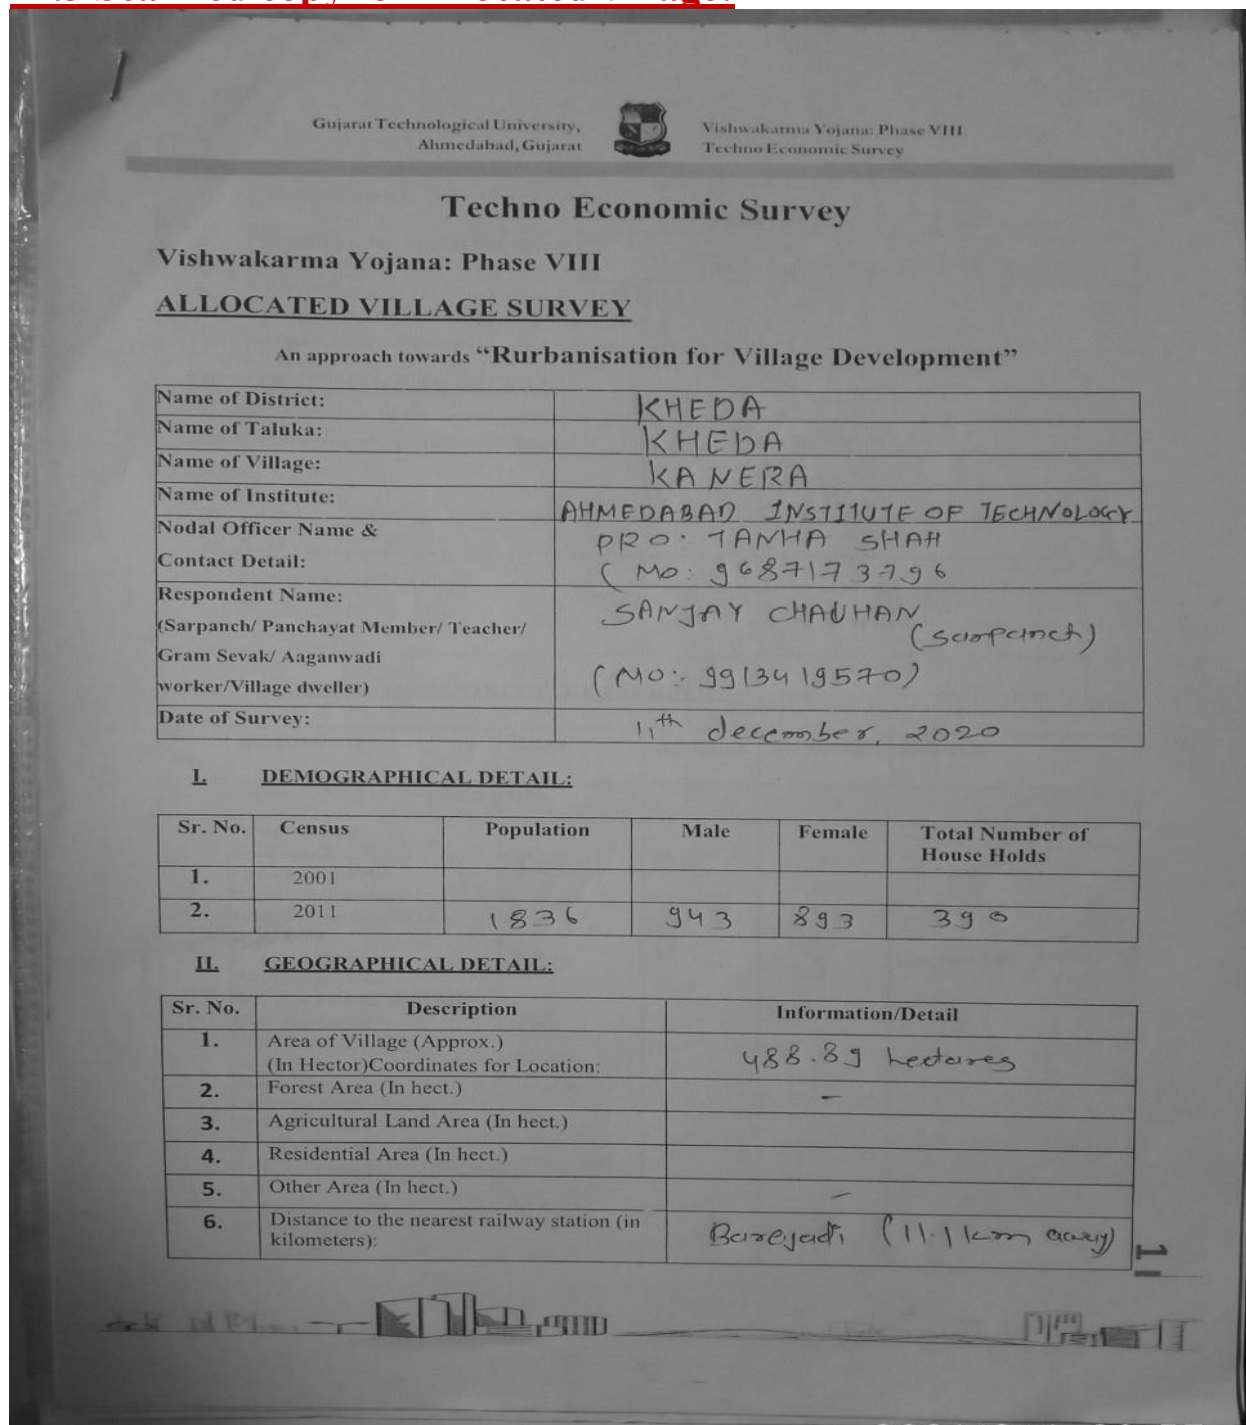 Gujarat Technological University,
Ahmedabad, Gujarat
Vishwakarma Yojana: Phase VIII
Techno Economic Survey
Techno Economic Survey
Vishwakarma Yojana: Phase VIII
ALLOCATED VILLAGE SURVEY
An approach towards “Rurbanisation for Village Development”
Name of District: KHEDA
Name of Taluka: KHEDA
Name of Village: KANERA
Name of Institute: AHMEDABAD INSTITUTE OF TECHNOLOGY
Nodal Officer Name & PRO. TANHA SHAH
Contact Detail: ( Mo: 9687173796
Respondent Name: SANJAY CHAUHAN
(Sarpanch/ Panchayat Member/ Teacher/ (Sarpanch)
Gram Sevak/ Aaganwadi
worker/Village dweller) (MO:- 9913419570)
Date of Survey: 11th december, 2020
I. DEMOGRAPHICAL DETAIL:
Sr. No. Census Population Male Female Total Number of
House Holds
1. 2001
2. 2011 1836 943 893 390
II. GEOGRAPHICAL DETAIL:
Sr. No. Description Information/Detail
1. Area of Village (Approx.)
(In Hector)Coordinates for Location: 488.89 hectares
2. Forest Area (In hect.) -
3. Agricultural Land Area (In hect.)
4. Residential Area (In hect.)
5. Other Area (In hect.) -
6. Distance to the nearest railway station (in
kilometers): Barejadi (11.1 km away)
1